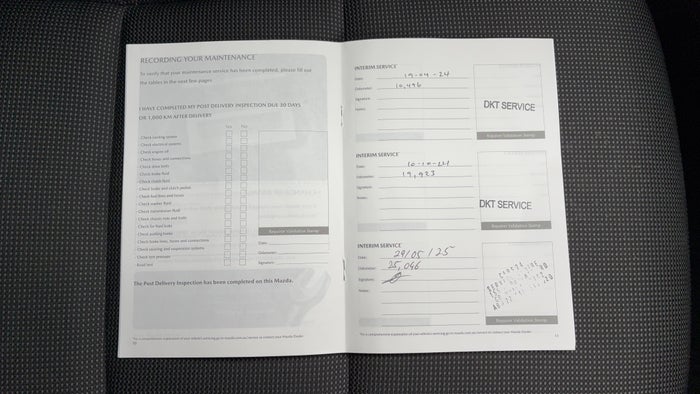 RECORDING YOUR MAINTENANCE
To verify that your maintenance service has been completed, please fill out
the tables in the next few pages
I HAVE COMPLETED MY POST DELIVERY INSPECTION DUE 30 DAYS
OR 1,000 KM AFTER DELIVERY
Yes No
Check cooling system
Check electrical systems
Check engine oil
Check hoses and connections
Check drive belts
Check brake fluid
Check clutch fluid
Check brake and clutch pedals
Check fuel lines and hoses
Check washer fluid
Check transmission fluid
Check chassis nuts and bolts
Check for fluid leaks
Check parking brake
Check brake lines, hoses and connections
Check steering and suspension systems
Check tyre pressure
Road test
Requires Validation Stamp
Date:
Odometer:
Signature:
The Post Delivery Inspection has been completed on this Mazda.
INTERIM SERVICE
Date: 19-04-24
Odometer: 10,496
Signature:
Notes:
DKT SERVICE
Requires Validation Stamp
INTERIM SERVICE
Date: 10-10-24
Odometer: 19,923
Signature:
Notes:
DKT SERVICE
Requires Validation Stamp
INTERIM SERVICE
Date: 29/05/25
Odometer: 25,046
Signature:
Notes:
Requires Validation Stamp